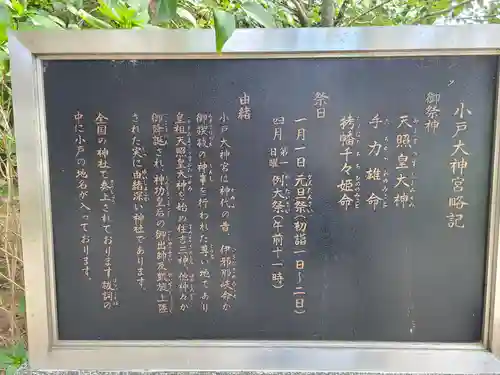 小戸大神宮略記
御祭神
天照皇大神
手力雄命
栲幡千々姫命
祭日
一月一日 元旦祭(初詣一日〜二日)
四月 第一日曜 例大祭(午前十一時)
由緒
小戸大神宮は神代の昔、伊邪那岐命が
御禊祓の神事を行われた尊い地であり
皇祖天照皇大神を始め住吉三神、他神々が
御降誕され、神功皇后の御出帥及凱旋上陸
された実に由緒深い神社であります。
全国の神社で奏上されております祓詞の
中に小戸の地名が入っております。